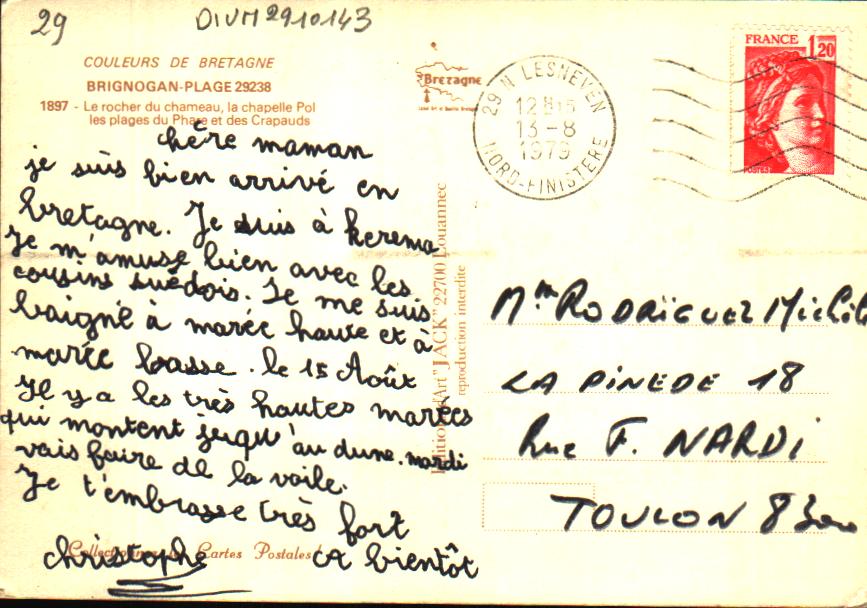 29
DIVM2910143
COULEURS DE BRETAGNE
BRIGNOGAN-PLAGE 29238
1897 - Le rocher du chameau, la chapelle Pol
les plages du Phare et des Crapauds
Bretagne
29 N LESNEVEN
13-8
1979
NORD-FINISTERE
FRANCE 1,20
POSTES
chère maman
je suis bien arrivé en
bretagne. Je suis à kerema
Je m'amuse bien avec les
cousins suédois. Je me suis
baigné à marée haute et à
marée basse. le 15 Août
Il y a les très hautes marées
qui montent juqu'au dune. mardi
vais faire de la voile.
Je t'embrasse très fort
christophe a bientôt
Editions d'Art "JACK" 22700 Louannec
reproduction interdite
Mme RODRIGUEZ Michele
LA PINEDE 18
Rue F. NARDI
TOULON 83000
Collectionnez les Cartes Postales